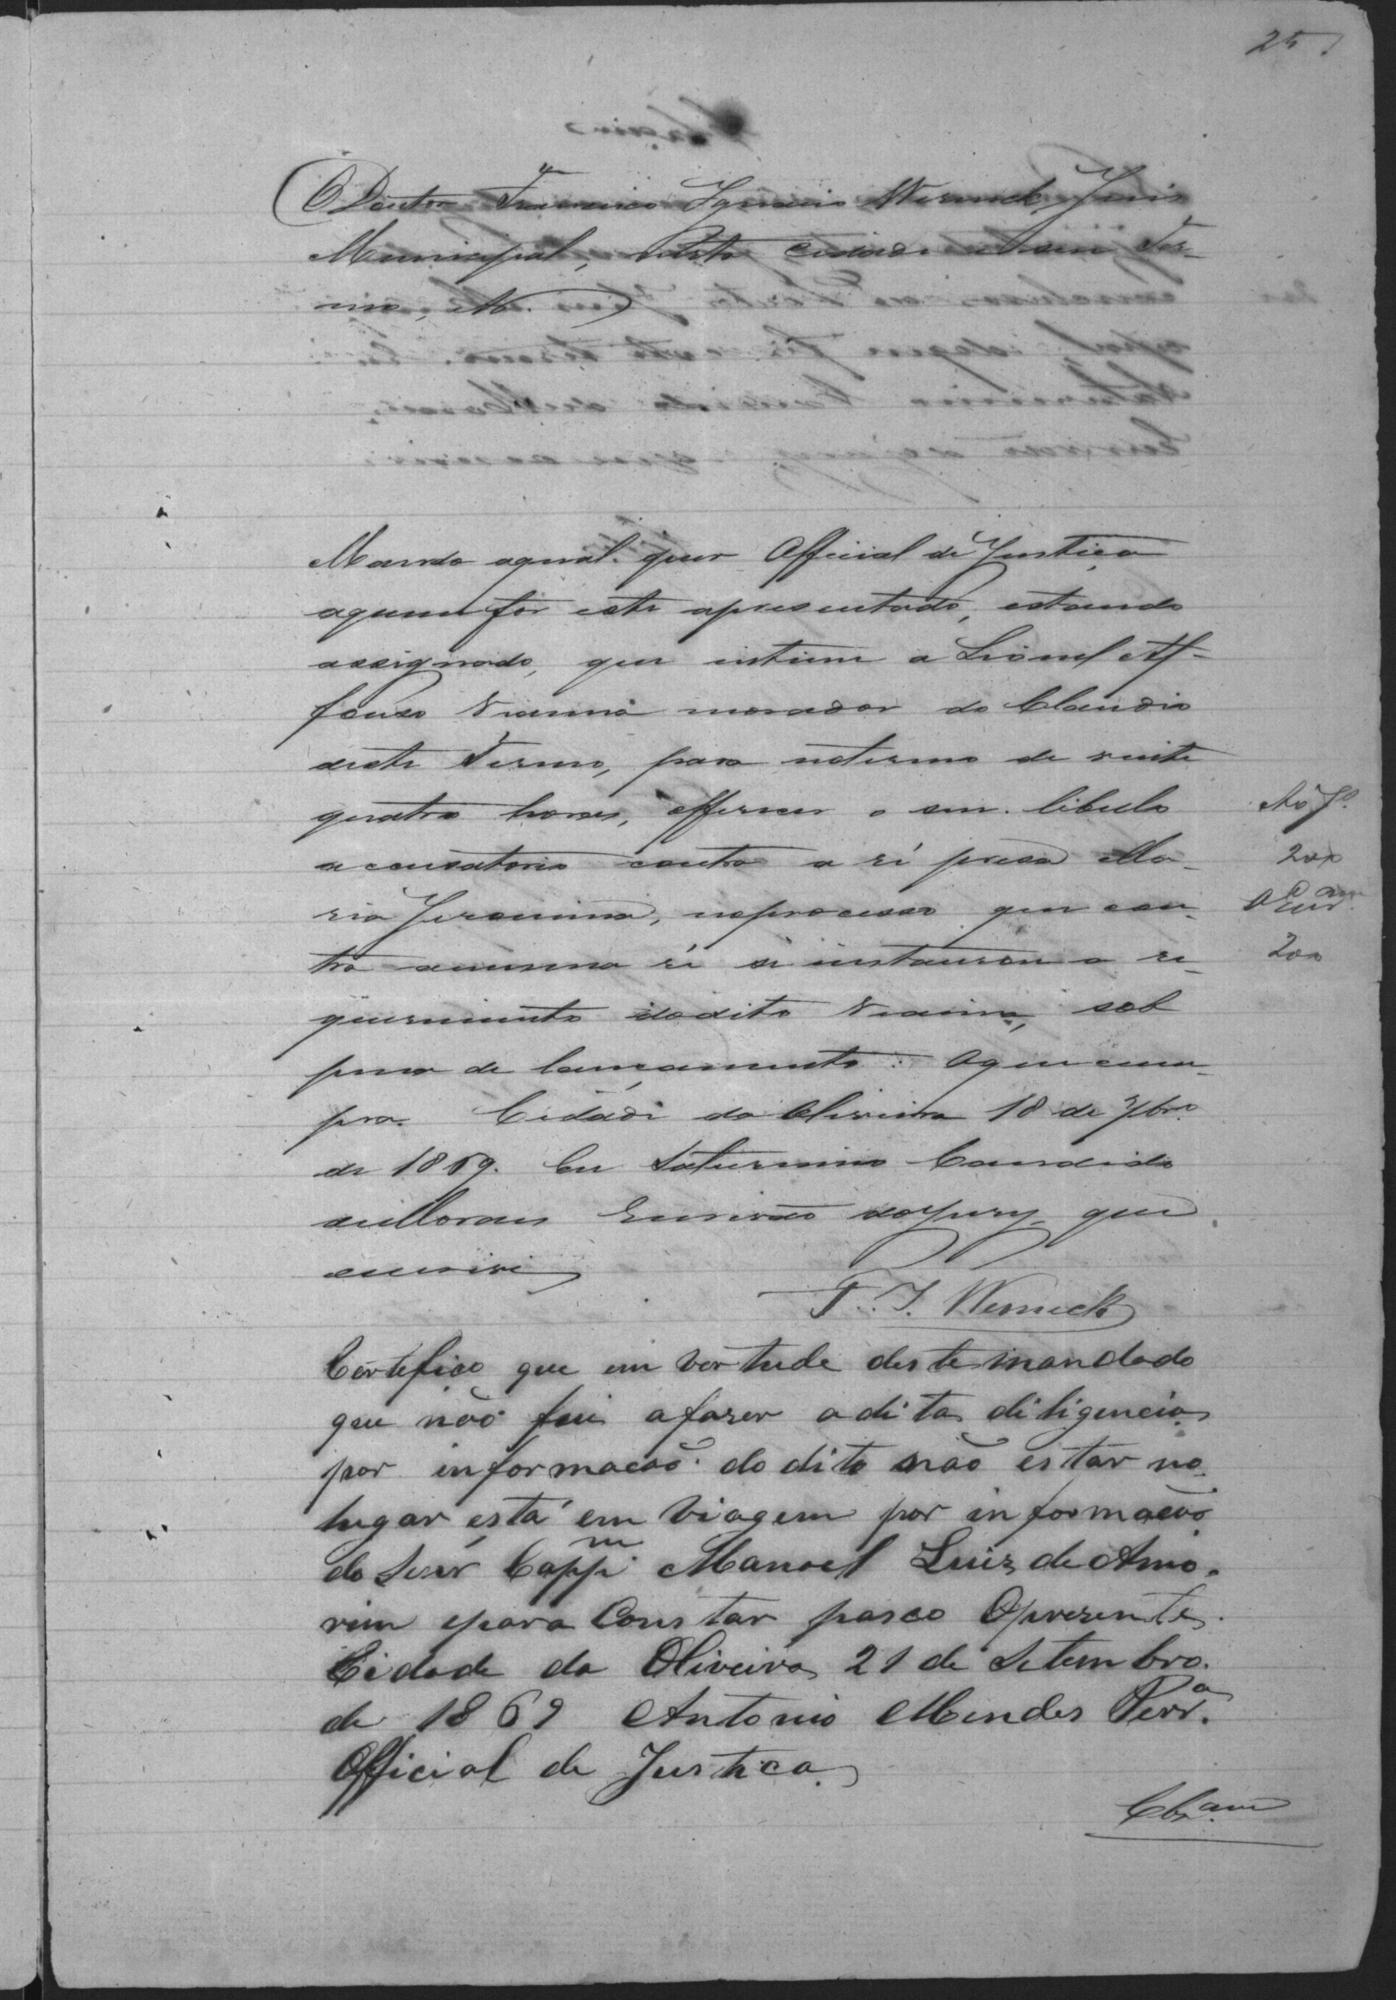 25
O Doutor Francisco Ignacio Werneck, Juis
Municipal, nesta cidade e seu Ter-
mo, etc.
Mando aqual quer Official de Justiça
aquem for este apresentado, estando
assignado, que intime a Lionel Af-
fonso Vianna morador do Claudio
deste Termo, para notermo de vinte
quatro horas, offerecer o seu libello
accusatorio contra a ré presa Ma-
ria Jeronima, noprocesso que con-
tra amesma ré se instaurou a re-
querimento dodito Vianna, sob
pena de lançamento. Oque cum-
pra. Cidade da Oliveira 18 de 7bro
de 1869. Eu Saturnino Candido
deMoraes Escrivão dojury que
escrevi
F. I. Werneck
Certefico que em vertude deste mandado
que não fui afaser adita diligencia
por informacão do dito não estar no
lugar está em viagem por informacão
do Senr Cappm Manoel Luis de Amo-
rim epara Constar passo Opresente
Cidade da Oliveira 21 de Setembro
de 1869 Antonio Mendes Perra
Official de Justica
Ao J.
200
200